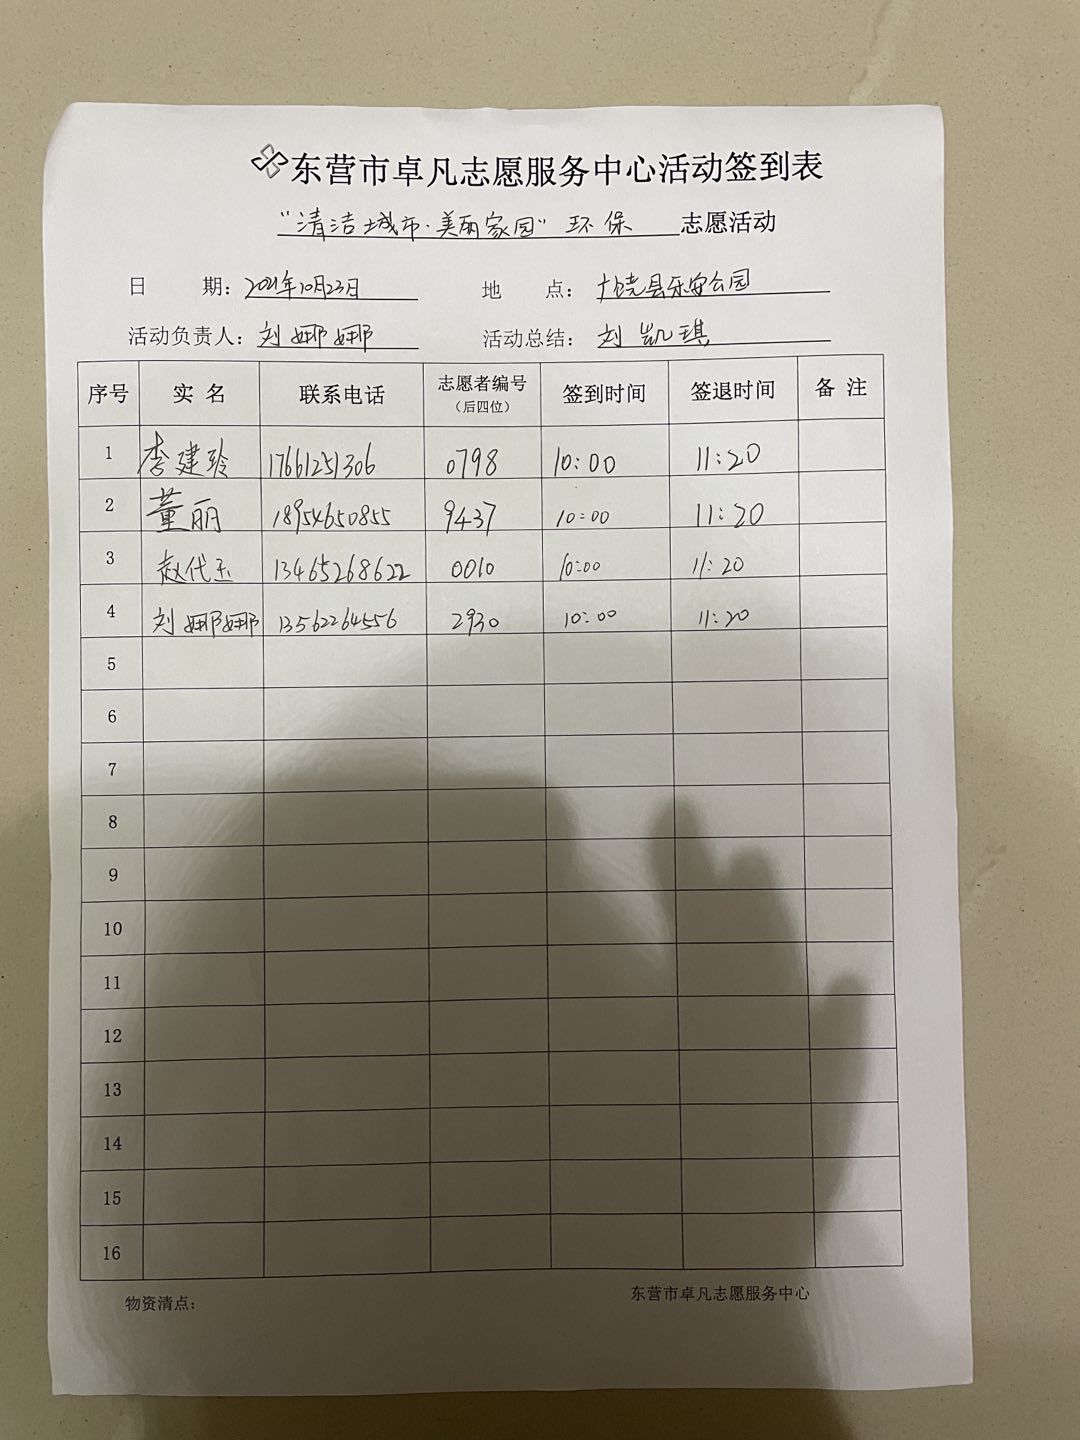 东营市卓凡志愿服务中心活动签到表
“清洁城市·美丽家园”环保 志愿活动
日 期：2021年10月23日 地 点：广饶县乐安公园
活动负责人：刘娜娜 活动总结：刘凯琪
序号 实 名 联系电话 志愿者编号（后四位） 签到时间 签退时间 备 注
1 李建玲 17661251306 0798 10:00 11:20
2 董丽 18954650855 9437 10:00 11:20
3 赵代玉 13465268622 0010 10:00 11:20
4 刘娜娜 13562264556 2930 10:00 11:20
5
6
7
8
9
10
11
12
13
14
15
16
物资清点： 东营市卓凡志愿服务中心